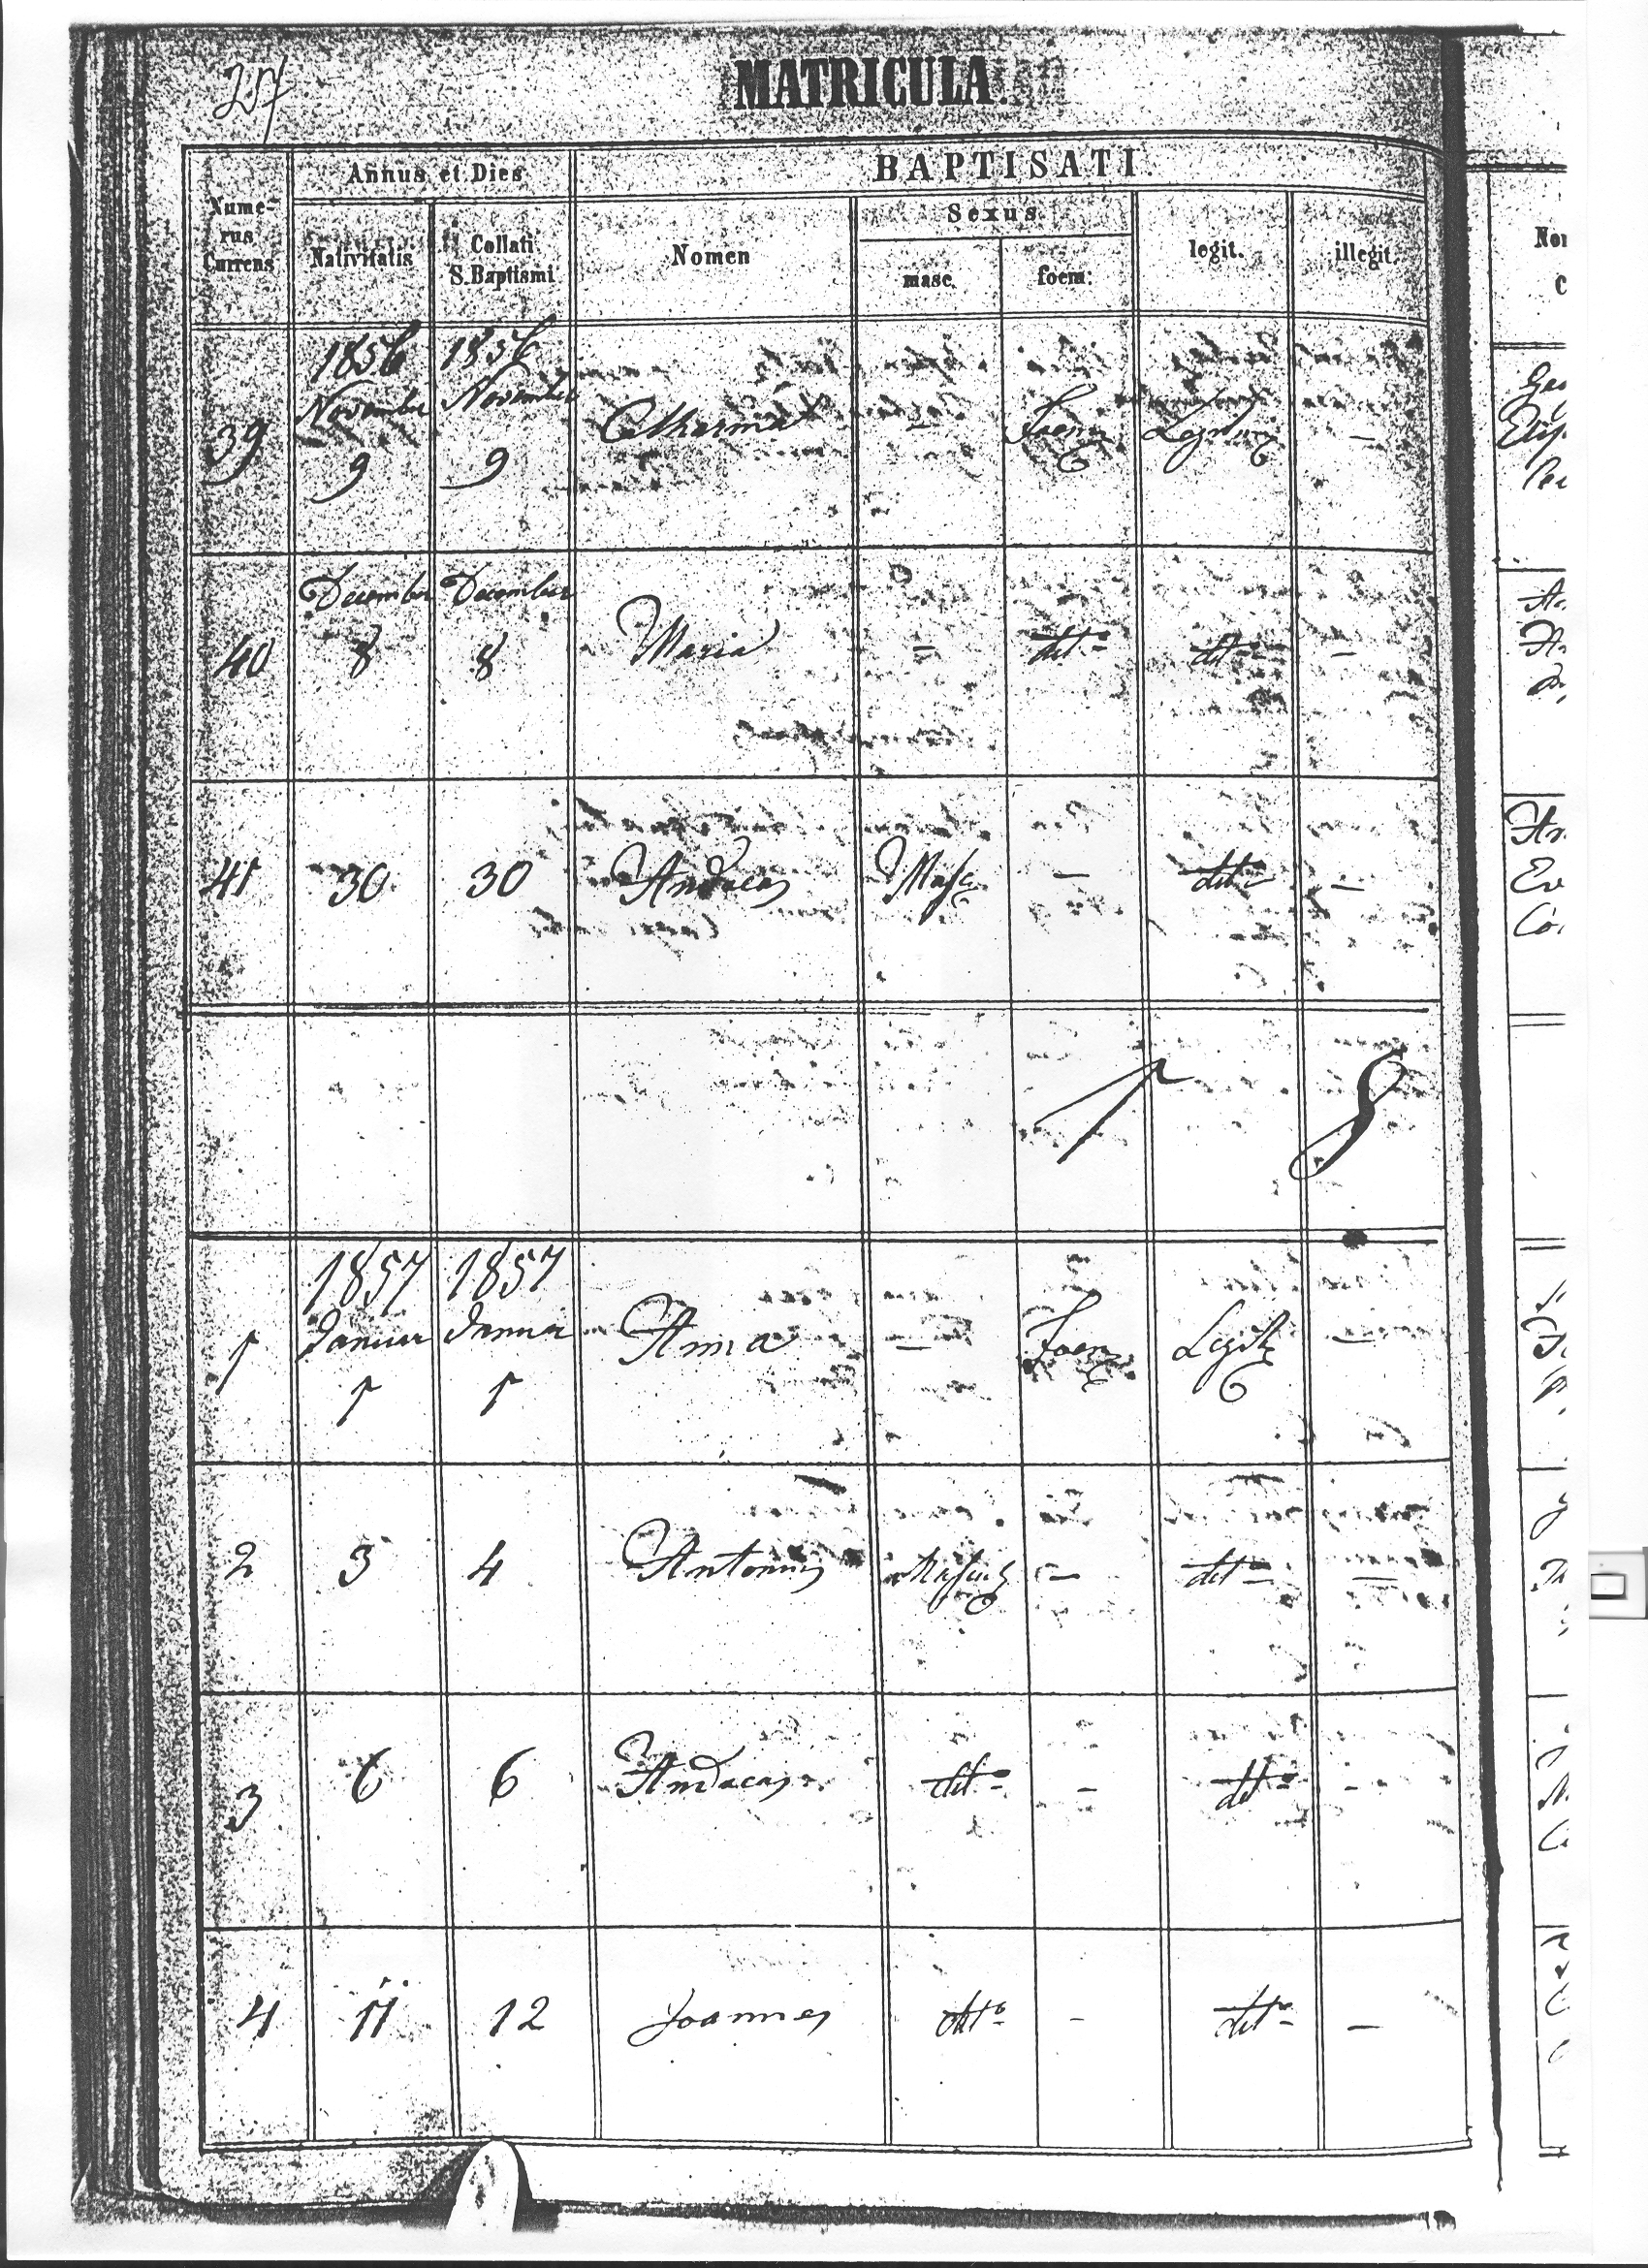 257
MATRICULA.
Nume-
rus
Currens
Annus et Dies
Nativitatis
Collati
S. Baptismi
BAPTISATI.
Nomen
Sexus
masc.
foem:
legit.
illegit.
39
1856
November
9
1856
November
9
Catharina
-
Foem
-
40
December
8
December
8
Maria
-
dito
dito
-
41
30
30
Andreas
Masc
-
dito
-
1
1857
Januar
1
1857
Januar
1
Anna
-
Foem
Legit
-
2
3
4
Antonius
-
dito
-
3
6
6
Andreas
dito
-
dito
-
4
11
12
Joannes
dito
-
dito
-